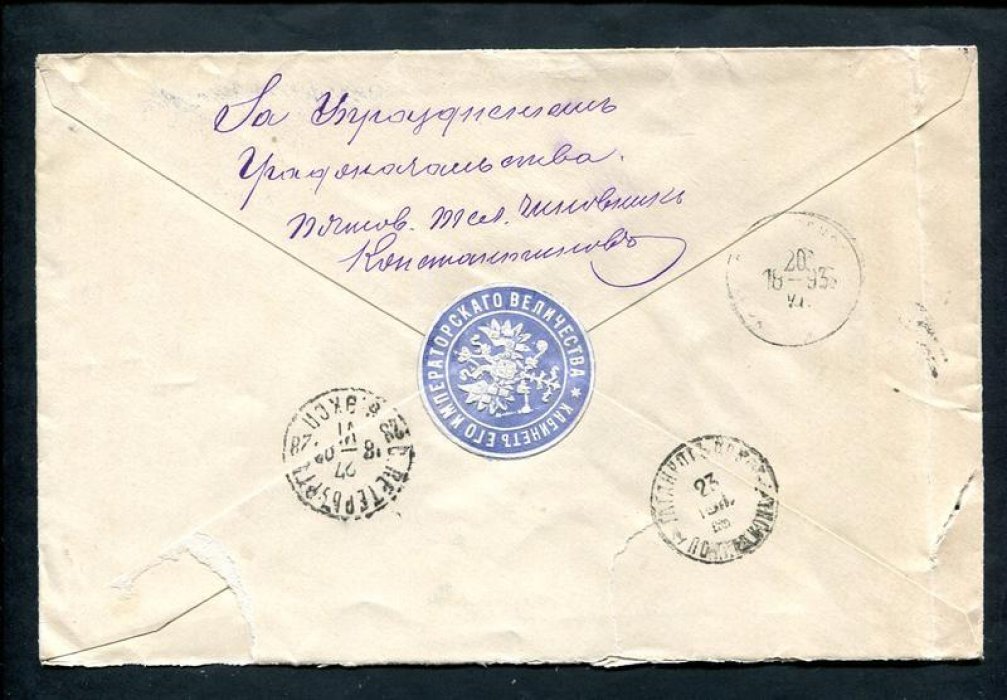 За Упразднениемъ
Градоначальства.
Почтов. Тел. Чиновникъ
Константиновъ
КАБИНЕТЪ ЕГО ИМПЕРАТОРСКАГО ВЕЛИЧЕСТВА
С.ПЕТЕРБУРГЪ 8 ЭКСП.
27
VI
18
23
ТАГАНРОГЪ